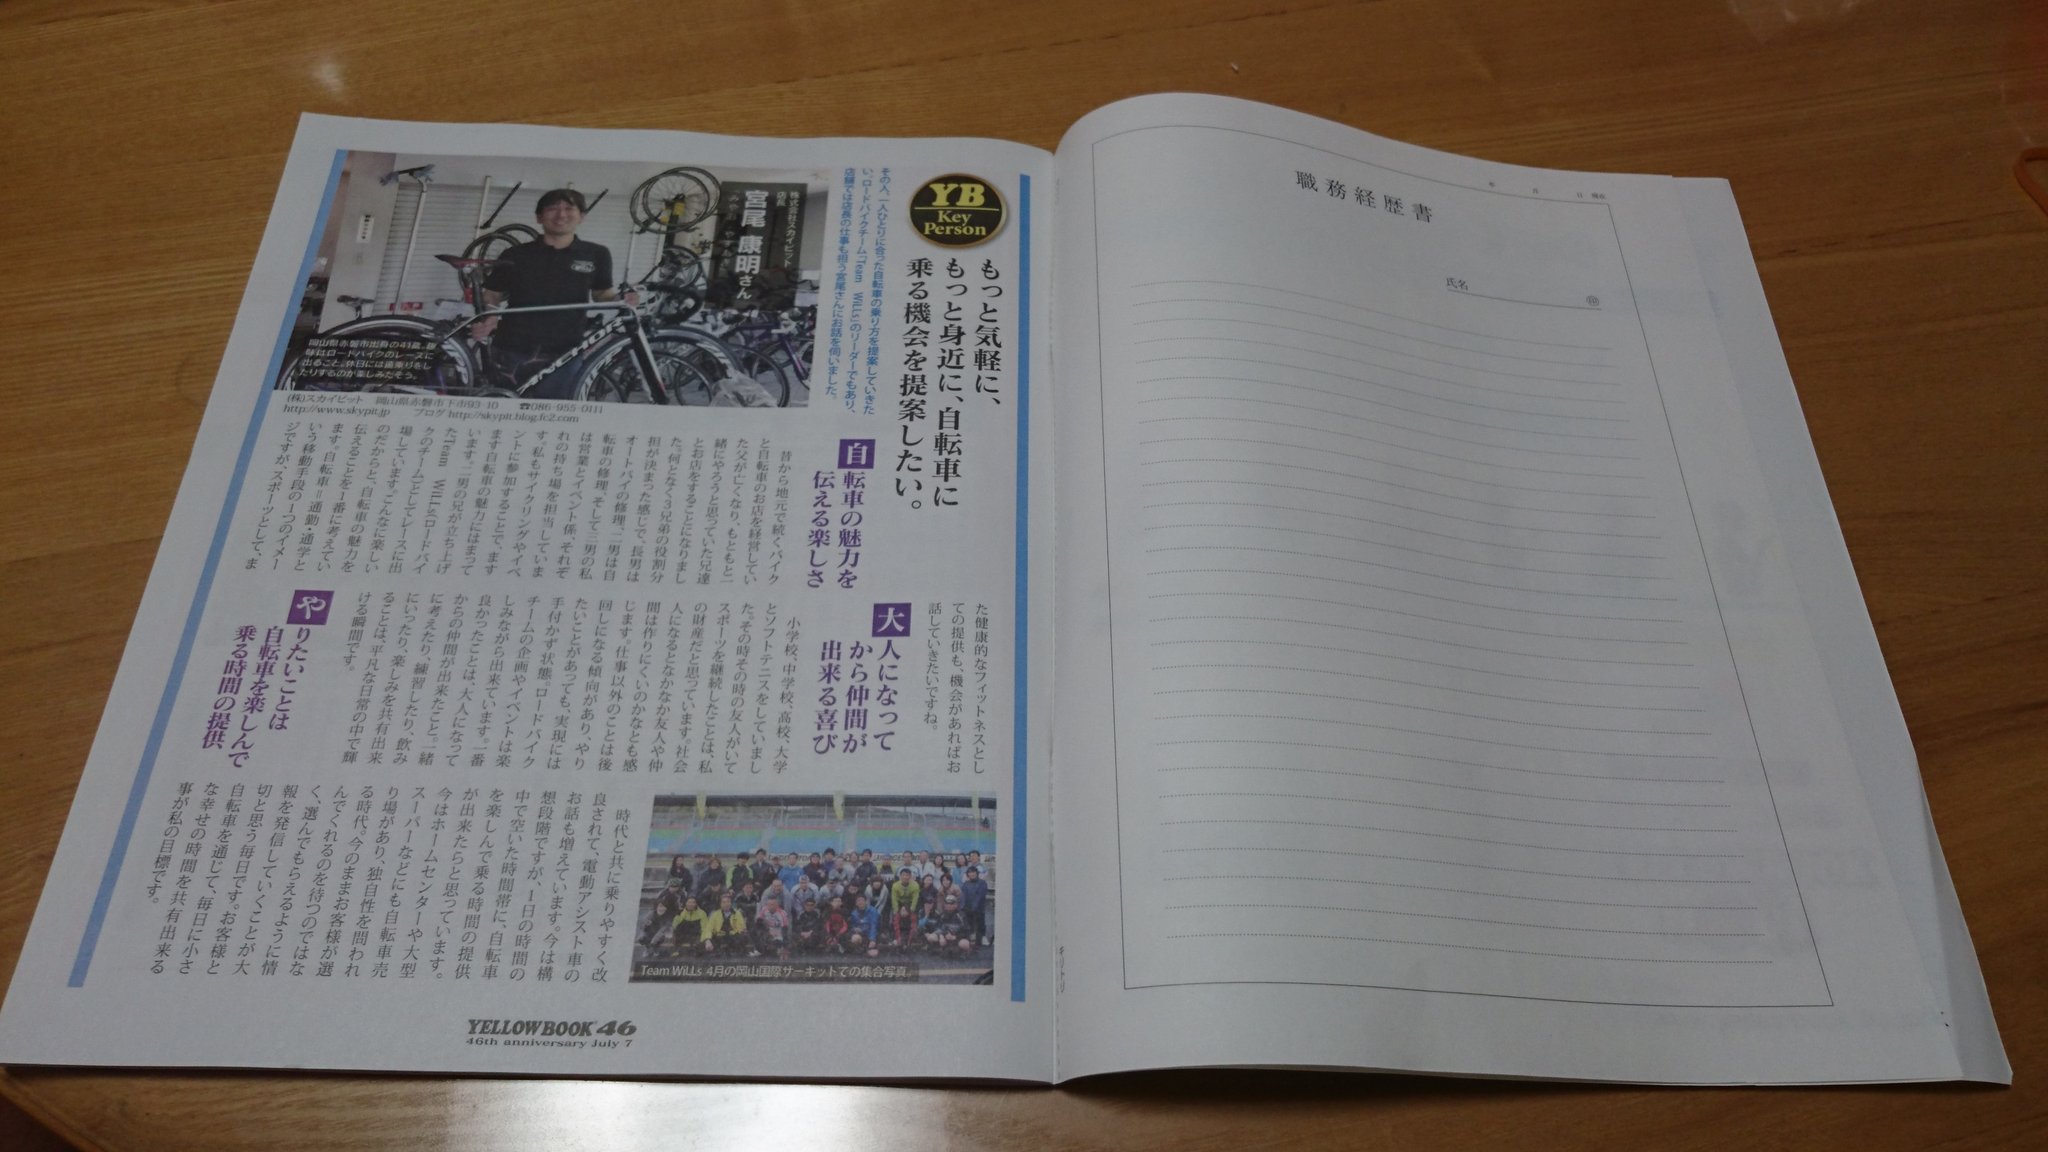 YB
Key
Person
もっと気軽に、
もっと身近に、自転車に
乗る機会を提案したい。
その人、一人ひとりに合った自転車の乗り方を提案していきた
い。ロードバイクチーム「Team WiLLs」のリーダーでもあり、
店舗では店長の仕事も担う宮尾さんにお話を伺いました。
株式会社スカイピット
店長
宮尾 康明さん
みやお やすあき
ANCHOR
岡山県赤磐市出身の41歳。趣
味はロードバイクのレースに
出ること。休日には遠乗りをし
たりするのが楽しみだそう。
(株)スカイピット 岡山県赤磐市下市93-10 ☎086-955-0111
http://www.skypit.jp ブログ http://skypit.blog.fc2.com
自転車の魅力を
伝える楽しさ
昔から地元で続くバイク
と自転車のお店を経営してい
た父が亡くなり、もともと一
緒にやろうと思っていた兄達
とお店をすることになりまし
た。何となく3兄弟の役割分
担が決まった感じで、長男は
オートバイの修理、二男は自
転車の修理、そして三男の私
は営業とイベント係、それぞ
れの持ち場を担当していま
す。私もサイクリングやイベ
ントに参加することで、ます
ます自転車の魅力にはまって
います。二男の兄が立ち上げ
たTeam WiLLs(ロードバイ
クのチーム)としてレースに出
場しています。こんなに楽しい
のだからと、自転車の魅力を
伝えることを1番に考えてい
ます。自転車＝通勤・通学と
いう移動手段の1つのイメー
ジですが、スポーツとして、ま
た健康的なフィットネスとし
ての提供も、機会があればお
話していきたいですね。
大人になって
から仲間が
出来る喜び
小学校、中学校、高校、大学
とソフトテニスをしていまし
た。その時その時の友人がいて
スポーツを継続したことは、私
の財産だと思っています。社会
人になるとなかなか友人や仲
間は作りにくいのかなとも感
じます。仕事以外のことは後
回しになる傾向があり、やり
たいことがあっても、実現には
手付かず状態。ロードバイク
チームの企画やイベントは楽
しみながら出来ています。一番
良かったことは、大人になって
からの仲間が出来たこと。一緒
に考えたり、練習したり、飲み
にいったり、楽しみを共有出来
ることは、平凡な日常の中で輝
ける瞬間です。
やりたいことは
自転車を楽しんで
乗る時間の提供
時代と共に乗りやすく改
良されて、電動アシスト車の
お話も増えています。今は構
想段階ですが、1日の時間の
中で空いた時間帯に、自転車
を楽しんで乗る時間の提供
が出来たらと思っています。
今はホームセンターや大型
スーパーなどにも自転車売
り場があり、独自性を問われ
る時代。今のままお客様が選
んでくれるのを待つのではな
く、選んでもらえるように情
報を発信していくことが大
切と思う毎日です。お客様と
自転車を通じて、毎日に小さ
な幸せの時間を共有出来る
事が私の目標です。
Team WiLLs 4月の岡山国際サーキットでの集合写真。
YELLOWBOOK 46
46th anniversary July 7
年 月 日 現在
職務経歴書
氏名 ㊞
キリトリ